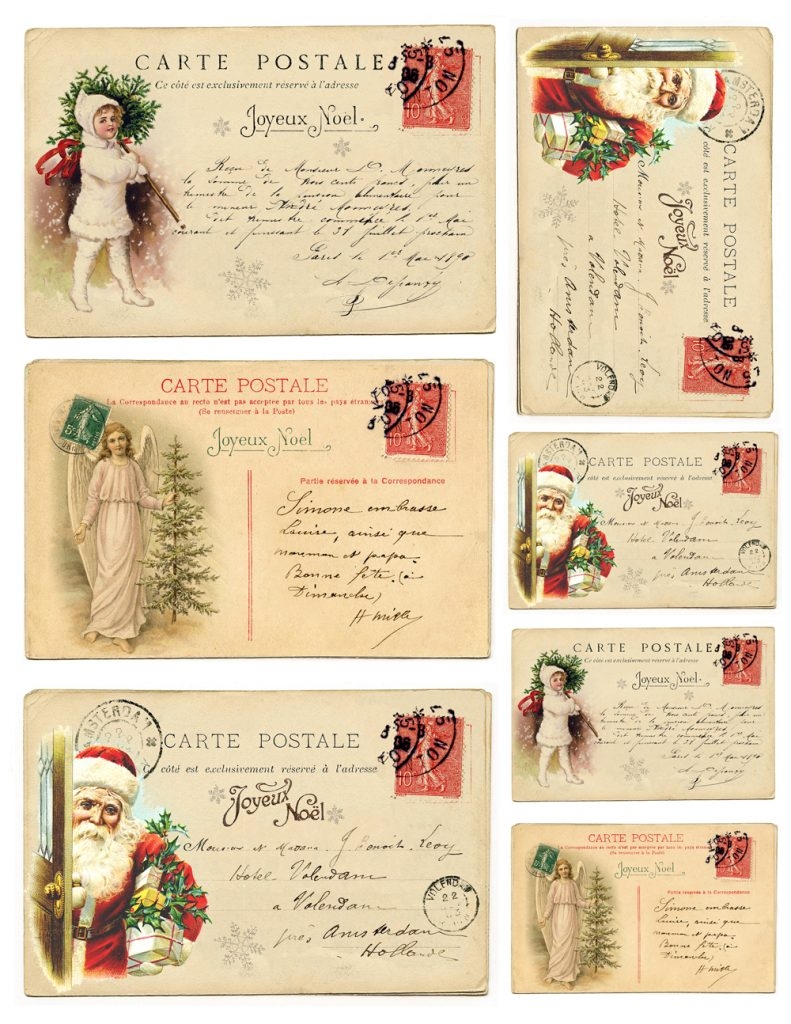 CARTE POSTALE
Ce côté est exclusivement réservé à l'adresse
Joyeux Noël
10
Reçu de Monsieur D. Monneyres
la somme de trois cents francs, pour un
trimestre de la pension alimentaire pour
le mineur André Monneyres
dit trimestre commence le 1er Mai
courant et finissant le 31 Juillet prochain
Paris le 1er Mai 1890
CARTE POSTALE
La Correspondance au recto n'est pas acceptée par tous les pays étran
(Se renseigner à la Poste)
5c
Joyeux Noel
10
Partie réservée à la Correspondance
Simone embrasse
Louise, ainsi que
maman et papa.
Bonne fête (à
Dimanche)
AMSTERDAM
CARTE POSTALE
Ce côté est exclusivement réservé à l'adresse
Joyeux Noël
10
Monsieur et Madame J. Benoit-Levy
Hotel Volendam
a Volendam
près Amsterdam
Hollande
VOLENDAM
22
AMSTERDAM
CARTE POSTALE
côté est exclusivement réservé à l'adresse
Joyeux Noël
10
Monsieur et Madame J. Benoit-Levy
Hotel Volendam
a Volendam
près Amsterdam
Hollande
VOLENDAM
22
CARTE POSTALE
côté est exclusivement réservé à l'adresse
Joyeux Noël
Monsieur et Madame J. Benoit-Levy
Hotel Volendam
a Volendam
près Amsterdam
Hollande
CARTE POSTALE
Ce côté est exclusivement réservé à l'adresse
Joyeux Noël
CARTE POSTALE
La Correspondance au recto n'est pas acceptée par tous les pays étran
(Se renseigner à la Poste)
Joyeux Noel
Partie réservée à la Correspondance
Simone embrasse
Louise, ainsi que
maman et papa.
Bonne fête (à
Dimanche)